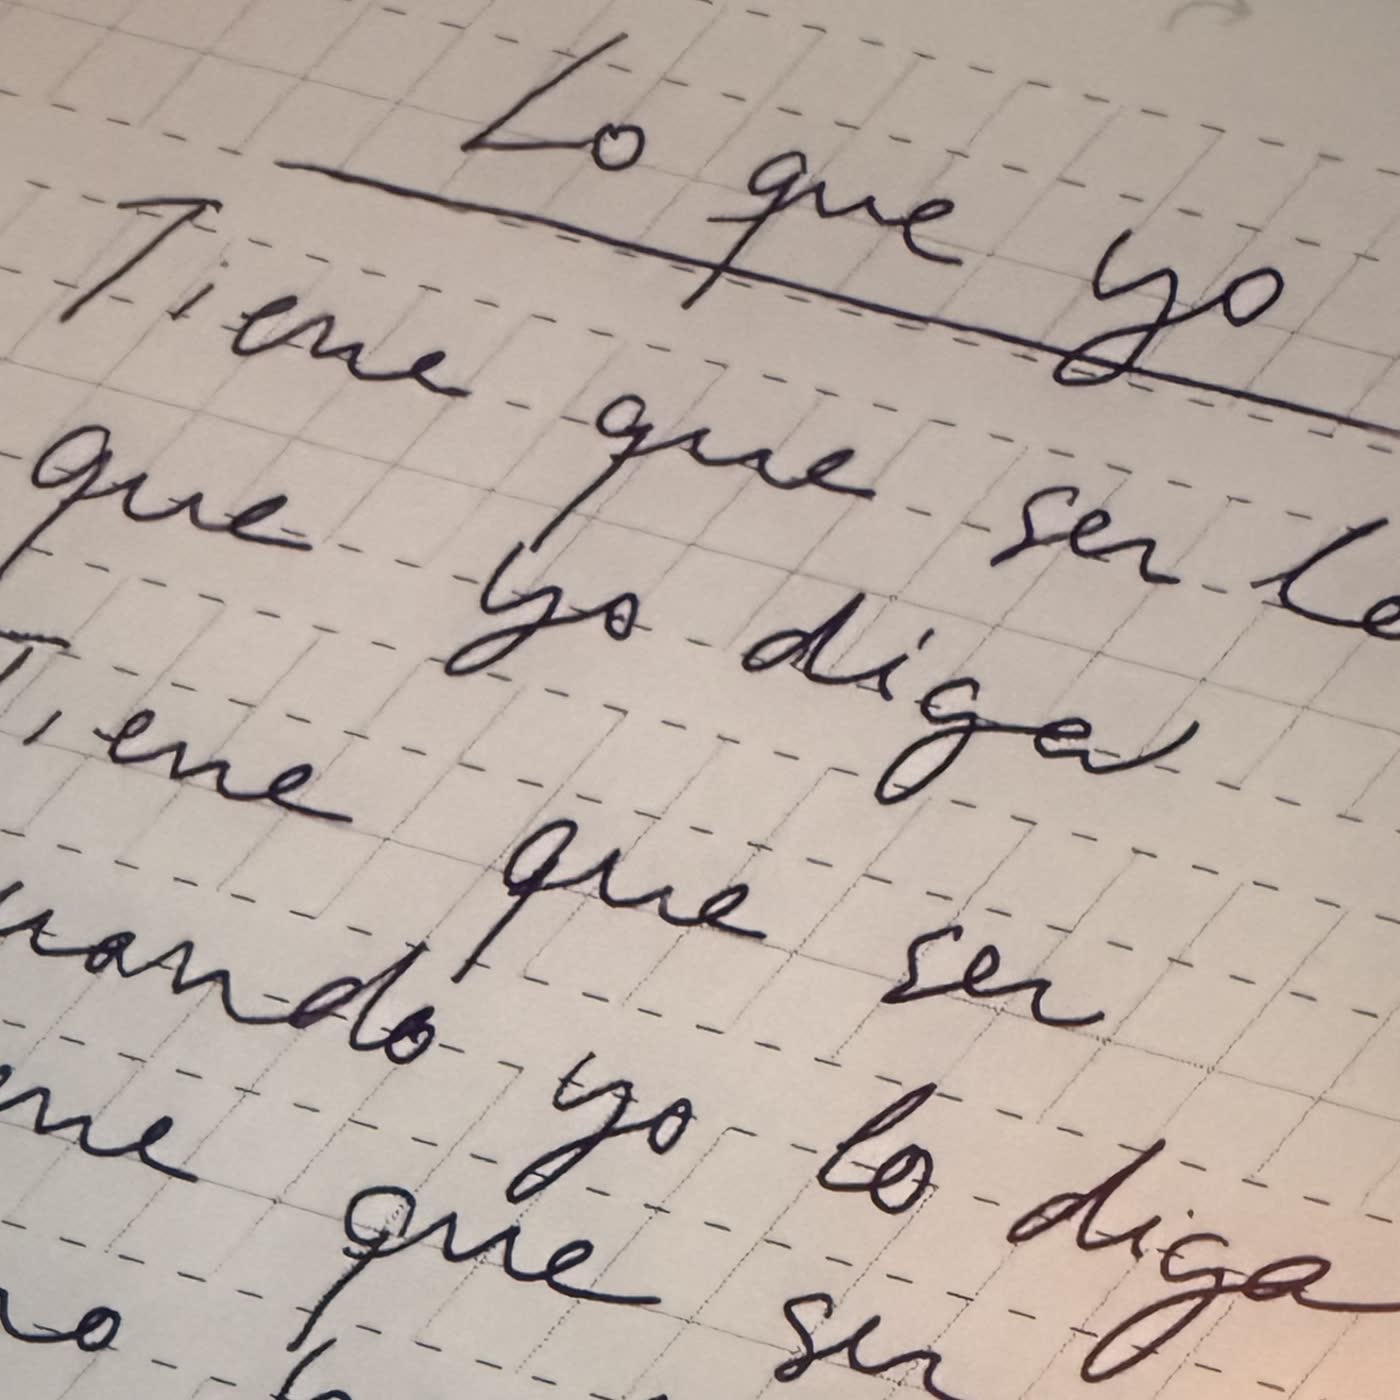 Lo que yo
Tiene que ser lo
que yo diga
Tiene que ser
cuando yo lo diga
que ser